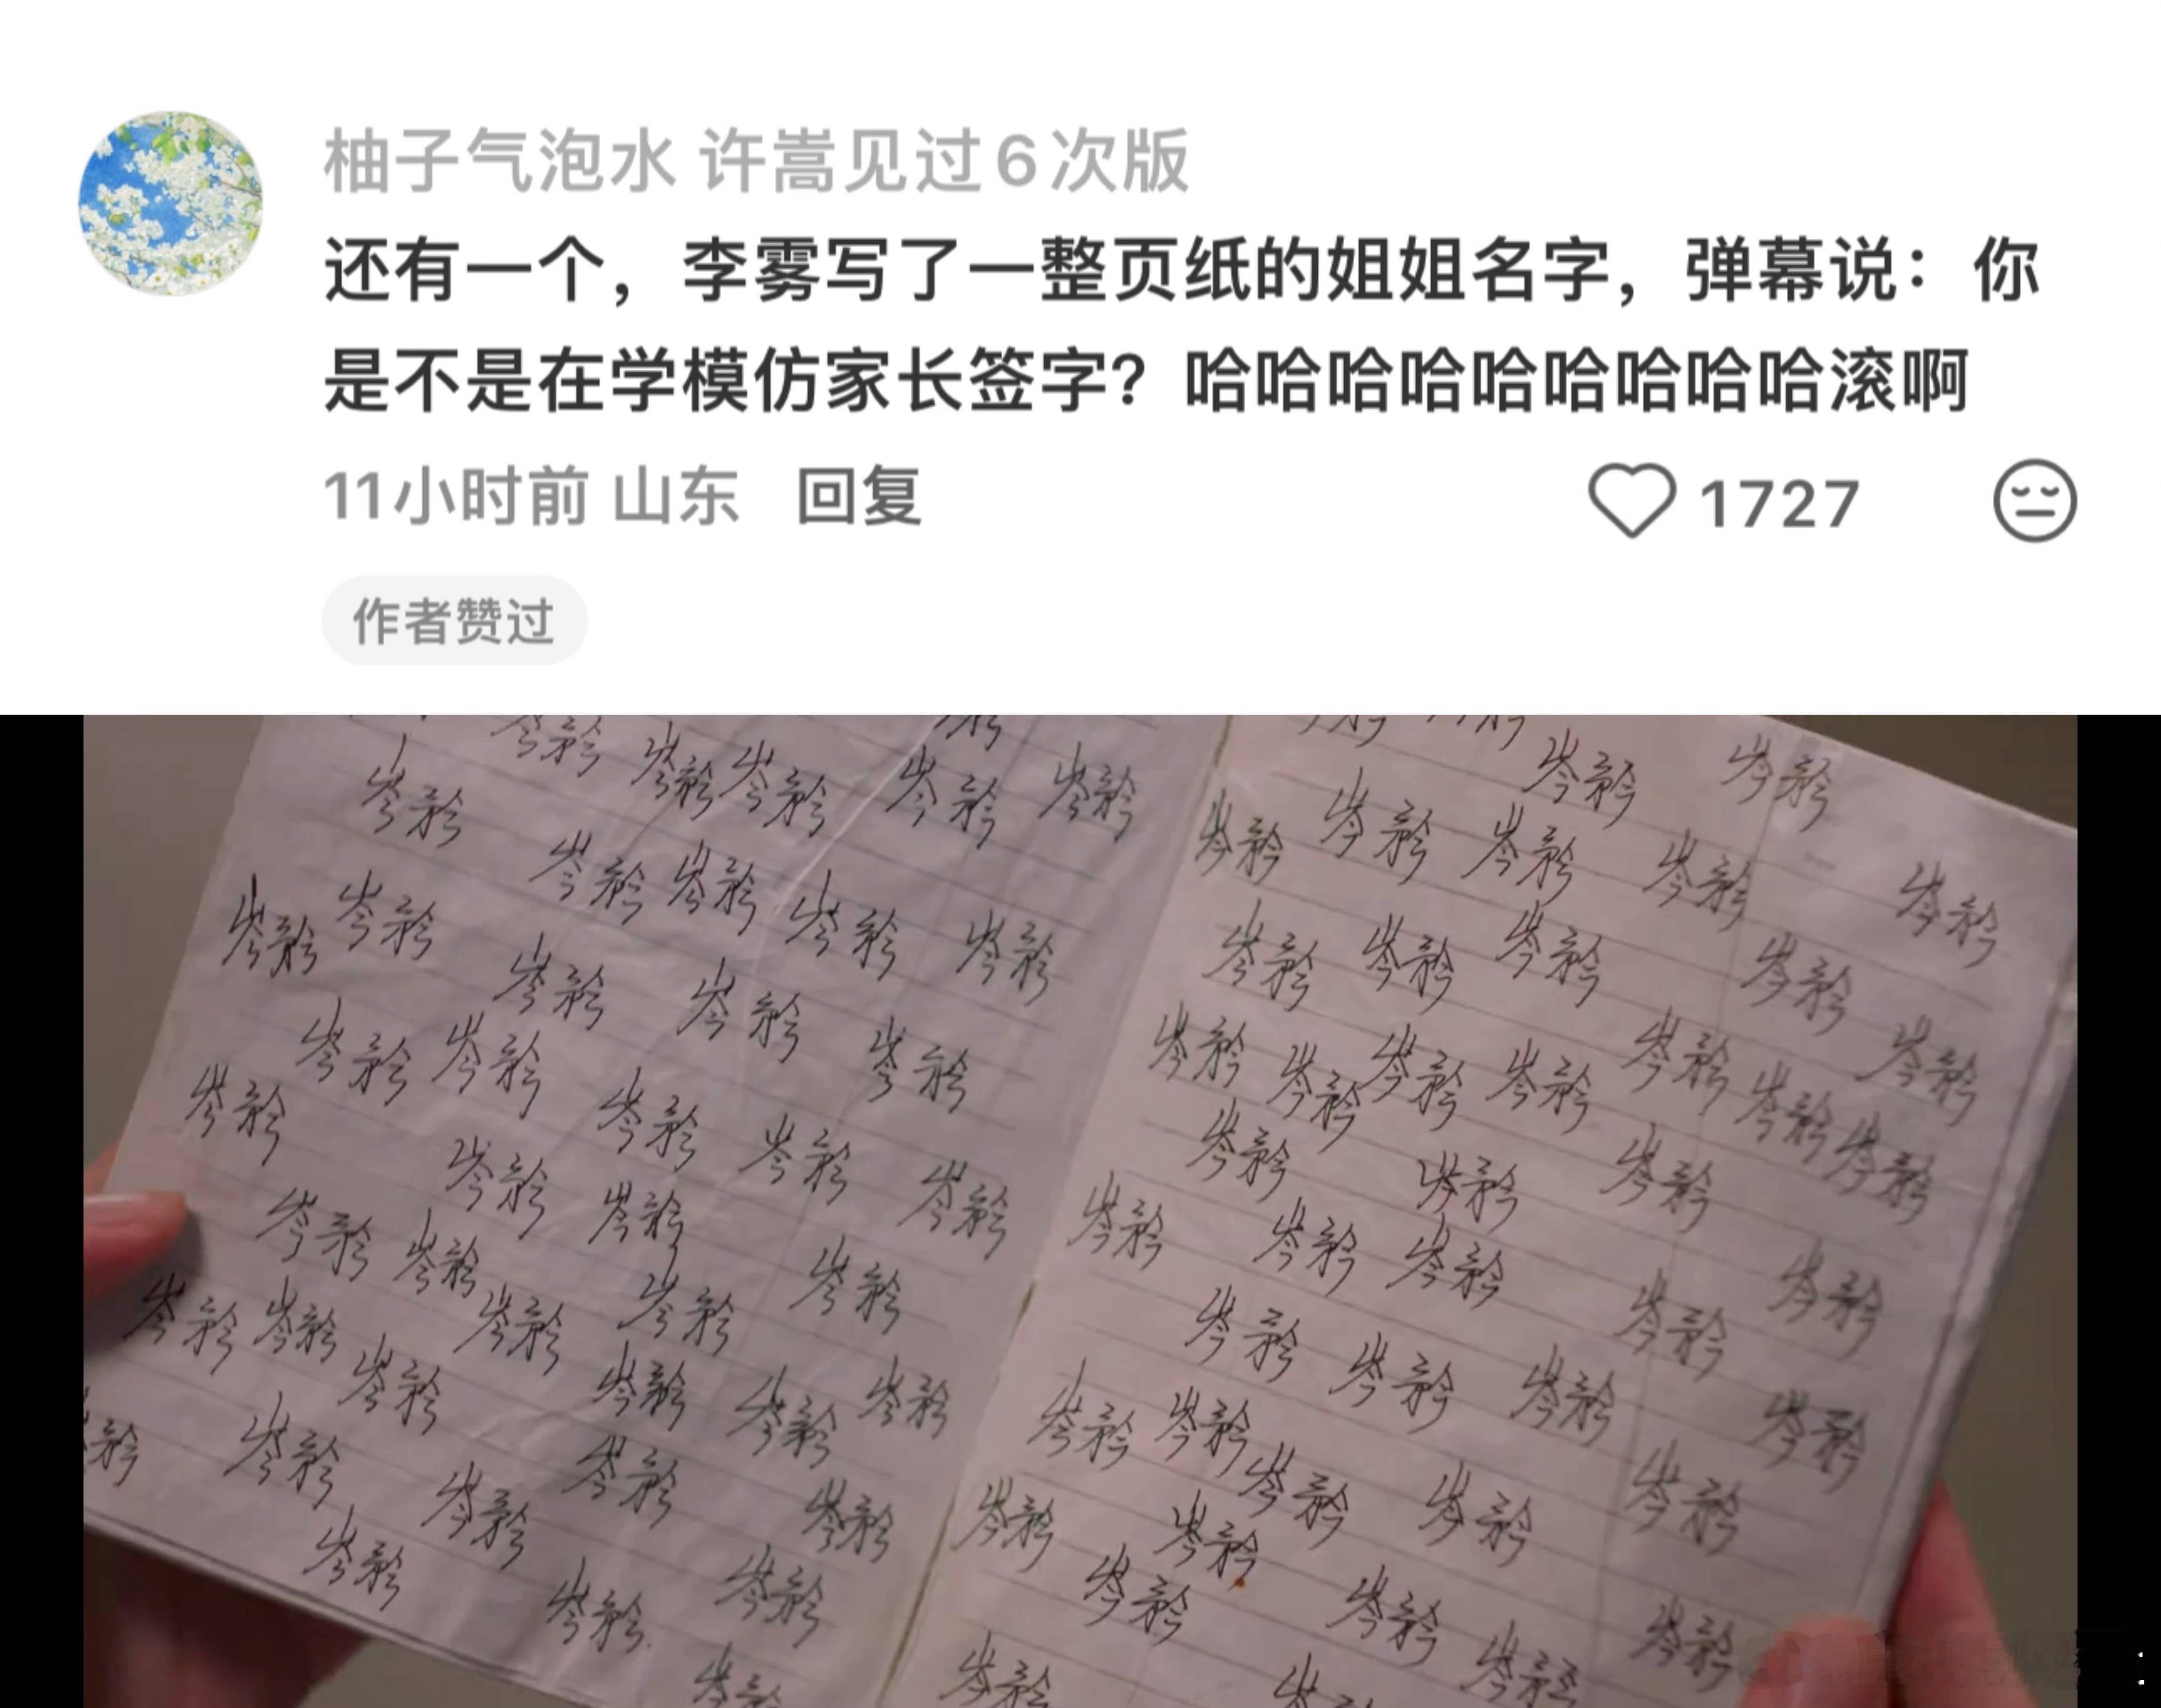 柚子气泡水 许嵩见过6次版
还有一个，李雾写了一整页纸的姐姐名字，弹幕说：你
是不是在学模仿家长签字？哈哈哈哈哈哈哈哈哈滚啊
11小时前 山东 回复 1727
作者赞过
岑矜 岑矜 岑矜 岑矜 岑矜
岑矜 岑矜 岑矜 岑矜 岑矜
岑矜 岑矜 岑矜 岑矜 岑矜
岑矜 岑矜 岑矜 岑矜 岑矜
岑矜 岑矜 岑矜 岑矜
岑矜 岑矜 岑矜 岑矜
岑矜 岑矜 岑矜 岑矜 岑矜 岑矜
岑矜 岑矜 岑矜 岑矜
岑矜 岑矜 岑矜
岑矜
岑矜 岑矜
岑矜 岑矜 岑矜 岑矜 岑矜
岑矜 岑矜 岑矜 岑矜 岑矜
岑矜 岑矜 岑矜 岑矜 岑矜 岑矜 岑矜
岑矜 岑矜 岑矜
岑矜 岑矜 岑矜 岑矜 岑矜
岑矜 岑矜 岑矜 岑矜
岑矜 岑矜 岑矜 岑矜 岑矜
岑矜 岑矜 岑矜 岑矜 岑矜
岑矜 岑矜